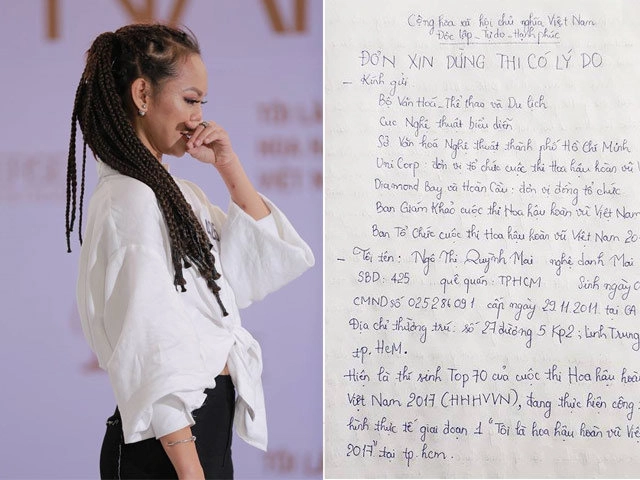 TÔI LÀ
HOA H
VIỆT N
Cộng hòa xã hội chủ nghĩa Việt Nam
Độc lập - Tự do - Hạnh phúc
ĐƠN XIN DỪNG THI CÓ LÝ DO
- Kính gửi
Bộ Văn Hoá - Thể thao và Du lịch
Cục Nghệ thuật biểu diễn
Sở Văn hoá Nghệ thuật thành phố Hồ Chí Minh
Uni Corp: đơn vị tổ chức cuộc thi Hoa hậu hoàn vũ V
Diamond Bay và Hoàn Cầu: đơn vị đồng tổ chức
Ban Giám Khảo cuộc thi Hoa hậu hoàn vũ Việt Nam
Ban Tổ Chức cuộc thi Hoa hậu hoàn vũ Việt Nam 20
- Tôi tên: Ngô Thị Quỳnh Mai nghệ danh Mai
SBD: 425 quê quán: TPHCM Sinh ngày 0
CMND số 025284091 cấp ngày 29.11.2011 tại CA
Địa chỉ thường trú: số 27 đường 5 Kp2; Linh Trung
tp. HCM.
Hiện là thí sinh Top 70 của cuộc thi Hoa hậu hoàn
Việt Nam 2017 (HHHVVN), đang thực hiện công
hình thực tế giai đoạn 1 "Tôi là hoa hậu hoàn vũ Việ
2017" tại tp. hcm.